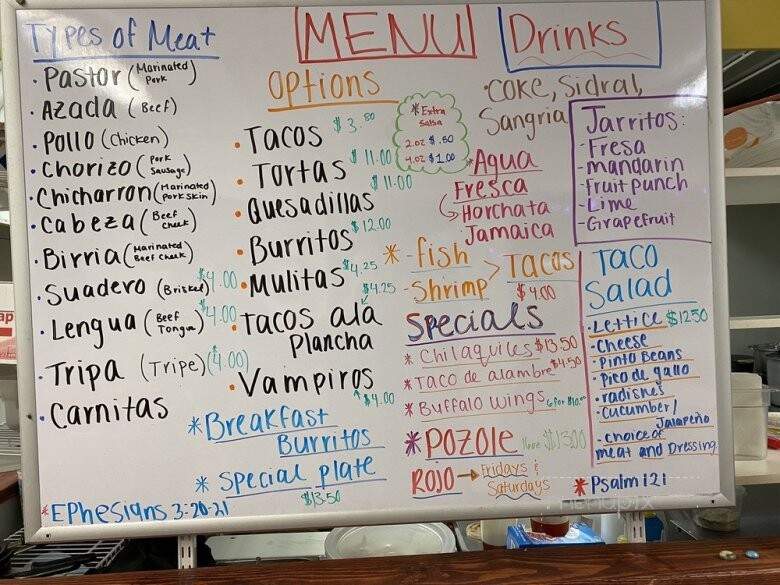 Types of Meat
· Pastor (Marinated Pork)
· Azada (Beef)
· Pollo (Chicken)
· Chorizo (Pork Sausage)
· Chicharron (Marinated Pork skin)
· Cabeza (Beef Cheek)
· Birria (Marinated Beef Cheek)
· Suadero (Brisket) $4.00
· Lengua (Beef Tongue) $4.00
· Tripa (Tripe) ($4.00)
· Carnitas
*Ephesians 3:20-21
MENU
Options
· Tacos $3.50
· Tortas $11.00
· Quesadillas $11.00
· Burritos $12.00
· Mulitas $4.25
· Tacos ala Plancha $4.25
· Vampiros $4.00
*Breakfast Burritos
* Special plate
$13.50
*Extra Salsa
2.oz $.50
4.oz $1.00
Drinks
·Coke, Sidral,
Sangria
*Agua
Fresca
Horchata
Jamaica
Jarritos:
- Fresa
- mandarin
- Fruit punch
- Lime
- Grapefruit
* - fish
- Shrimp
> Tacos
$4.00
Specials
* Chilaquiles $13.50
* Taco de alambre $4.50
* Buffalo Wings
*Pozole $13.00
ROJO → Fridays &
Saturdays
Taco
Salad
- Lettice $12.50
- Cheese
- Pinto Beans
- Pico de gallo
- radishes
- cucumber/
Jalapeño
- choice of
meat and Dressing
*Psalm 121